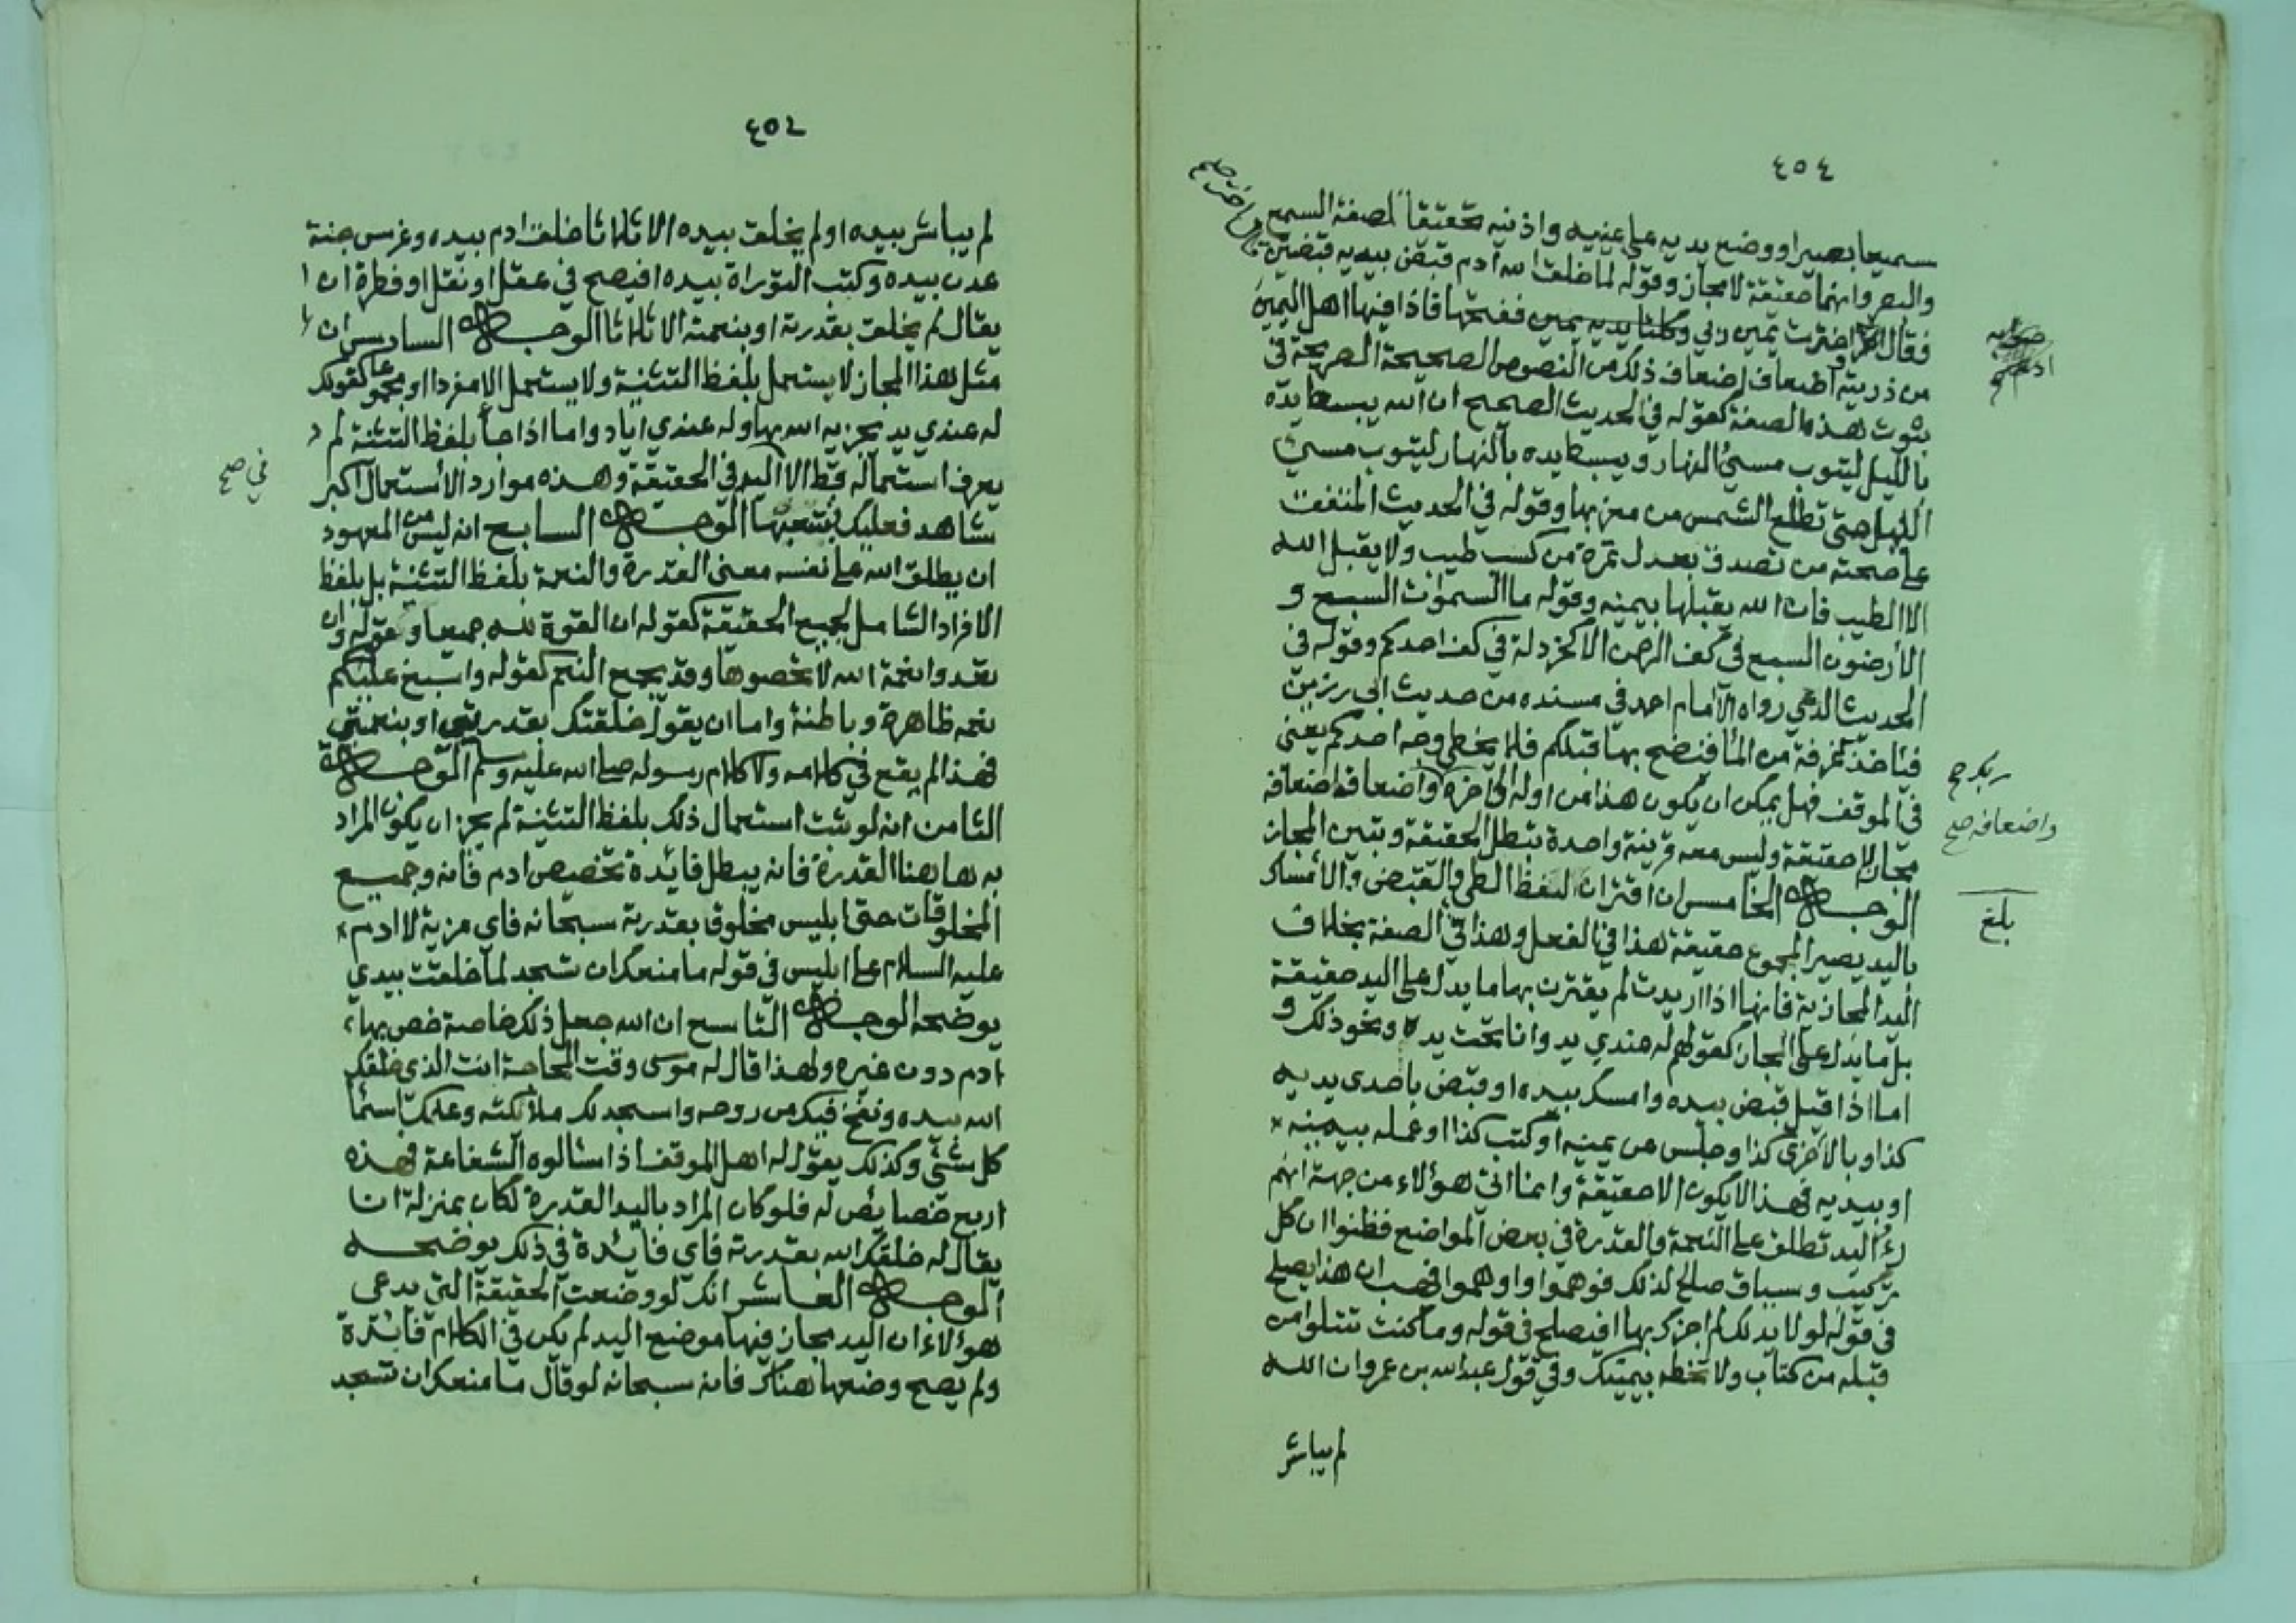 ٤٥٤
سميعا بصيرا ووضع يديه على عينيه واذنيه تحقيقا لصفة السمع
والبصر وانهما حقيقة لا مجاز وقوله لما خلق الله آدم قبض بيديه قبضتين
فقال اختر اخترت يمين ربي وكلتا يديه يمين ففتحها فاذا فيها اهل اليمين
من ذريته واضعاف اضعاف ذلك من النصوص الصحيحة الصريحة في
ثبوت هذه الصفة كقوله في الحديث الصحيح ان الله يبسط يده
بالليل ليتوب مسيئ النهار ويبسط يده بالنهار ليتوب مسيئ
الليل حتى تطلع الشمس من مغربها وقوله في الحديث المتفق
على صحته من تصدق بعدل تمرة من كسب طيب ولا يقبل الله
الا الطيب فان الله يقبلها بيمينه وقوله ما السموات السبع و
الارضون السبع في كف الرحمن الا كخردلة في كف احدكم وقوله في
الحديث الذي رواه الامام احمد في مسنده من حديث ابي رزين
فيأخذ غرفة من الماء فينضح بها قبلكم فلا يخطي وجه احدكم يعني
في الموقف فهل يمكن ان يكون هذا من اوله الى آخره واضعافه اضعافه
مجاز لا حقيقة وليس معه قرينة واحدة تبطل الحقيقة وتبين المجاز
الوجه الخامس ان اقتران لفظ الطي والقبض والامساك
باليد يصير المجموع حقيقة هذا في الفعل وهذا في الصفة بخلاف
اليد المجازية فانها اذا اريدت لم يقترن بها ما يدل على اليد حقيقة
بل ما يدل على المجاز كقولهم له عندي يد وانا تحت يده ونحو ذلك و
اما اذا قيل قبض بيده وامسك بيده او قبض باحدى يديه
كذا وبالاخرى كذا وجلس عن يمينه او كتب كذا او عمله بيمينه
او بيديه فهذا لا يكون الا حقيقة وانما اتي هؤلاء من جهة انهم
رأو اليد تطلق على النعمة والقدرة في بعض المواضع فظنوا ان كل
تركيب وسياق صالح لذلك فوهموا واوهموا فهب ان هذا يصلح
في قوله لولا يد لك لم اجزك بها افيصلح في قوله وما كنت تتلوا من
قبله من كتاب ولا تخطه بيمينك وفي قول عبدالله بن عمرو ان الله
لم يباشر
واضعافه صح
بلغ
٤٥٤
لم يباشر بيده او لم يخلق بيده الا ثلاثا خلق ادم بيده وغرس جنة
عدن بيده وكتب التوراة بيده افيصح في عقل او نقل او فطرة ان
يقال لم يخلق بقدرته او بنعمته الا ثلاثا الوجه السادس ان
مثل هذا المجاز لا يستعمل بلفظ التثنية ولا يستعمل الا مفردا او مجموعا كقولك
له عندي يد يجزيه الله بها وله عندي اياد واما اذا جاء بلفظ التثنية لم
يعرف استعماله قط الا في اليد الحقيقة وهذه موارد الاستعمال اكبر
شاهد فعليك بتتبعها الوجه السابع انه ليس من المعهود
ان يطلق الله على نفسه معنى القدرة والنعمة بلفظ التثنية بل بلفظ
الافراد الشامل لجميع الحقيقة كقوله ان القوة لله جميعا وقوله وان
تعدوا نعمة الله لا تحصوها وقد يجمع النعم كقوله واسبغ عليكم
نعمه ظاهرة وباطنة واما ان يقول خلقتك بقدرتي او بنعمتي
فهذا لم يقع في كلامه ولا كلام رسوله صلى الله عليه وسلم الوجه
الثامن انه لو ثبت استعمال ذلك بلفظ التثنية لم يجز ان يكون المراد
به هاهنا القدرة فانه يبطل فايدة تخصيص ادم فانه وجميع
المخلوقات حتى ابليس مخلوق بقدرته سبحانه فاي مزية لادم
عليه السلام على ابليس في قوله ما منعك ان تسجد لما خلقت بيدي
يوضحه الوجه التاسع ان الله جعل ذلك خاصة خص بها
ادم دون غيره ولهذا قال له موسى وقت المحاجة انت الذي خلقك
الله بيده ونفخ فيك من روحه واسجد لك ملائكته وعلمك اسماء
كل شئ وكذلك يقول له اهل الموقف اذا سألوه الشفاعة فهذه
اربع خصائص له فلو كان المراد باليد القدرة لكان بمنزلة ان
يقال له خلقك الله بقدرته فاي فائدة في ذلك يوضحه
الوجه العاشر انك لو وضعت الحقيقة التي يدعى
هؤلاء ان اليد مجاز فيها موضع اليد لم يكن في الكلام فائدة
ولم يصح وضعها هناك فانه سبحانه لو قال ما منعك ان تسجد
في صح